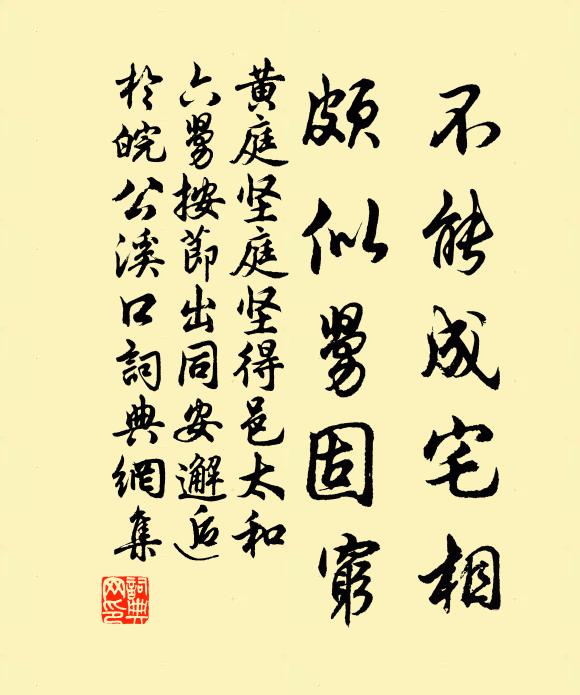 不能成宅相
頗似舅固窮
黄庭坚庭坚得邑太和
六舅按節出同安邂逅
於皖公溪口詞典網集
詞典网印